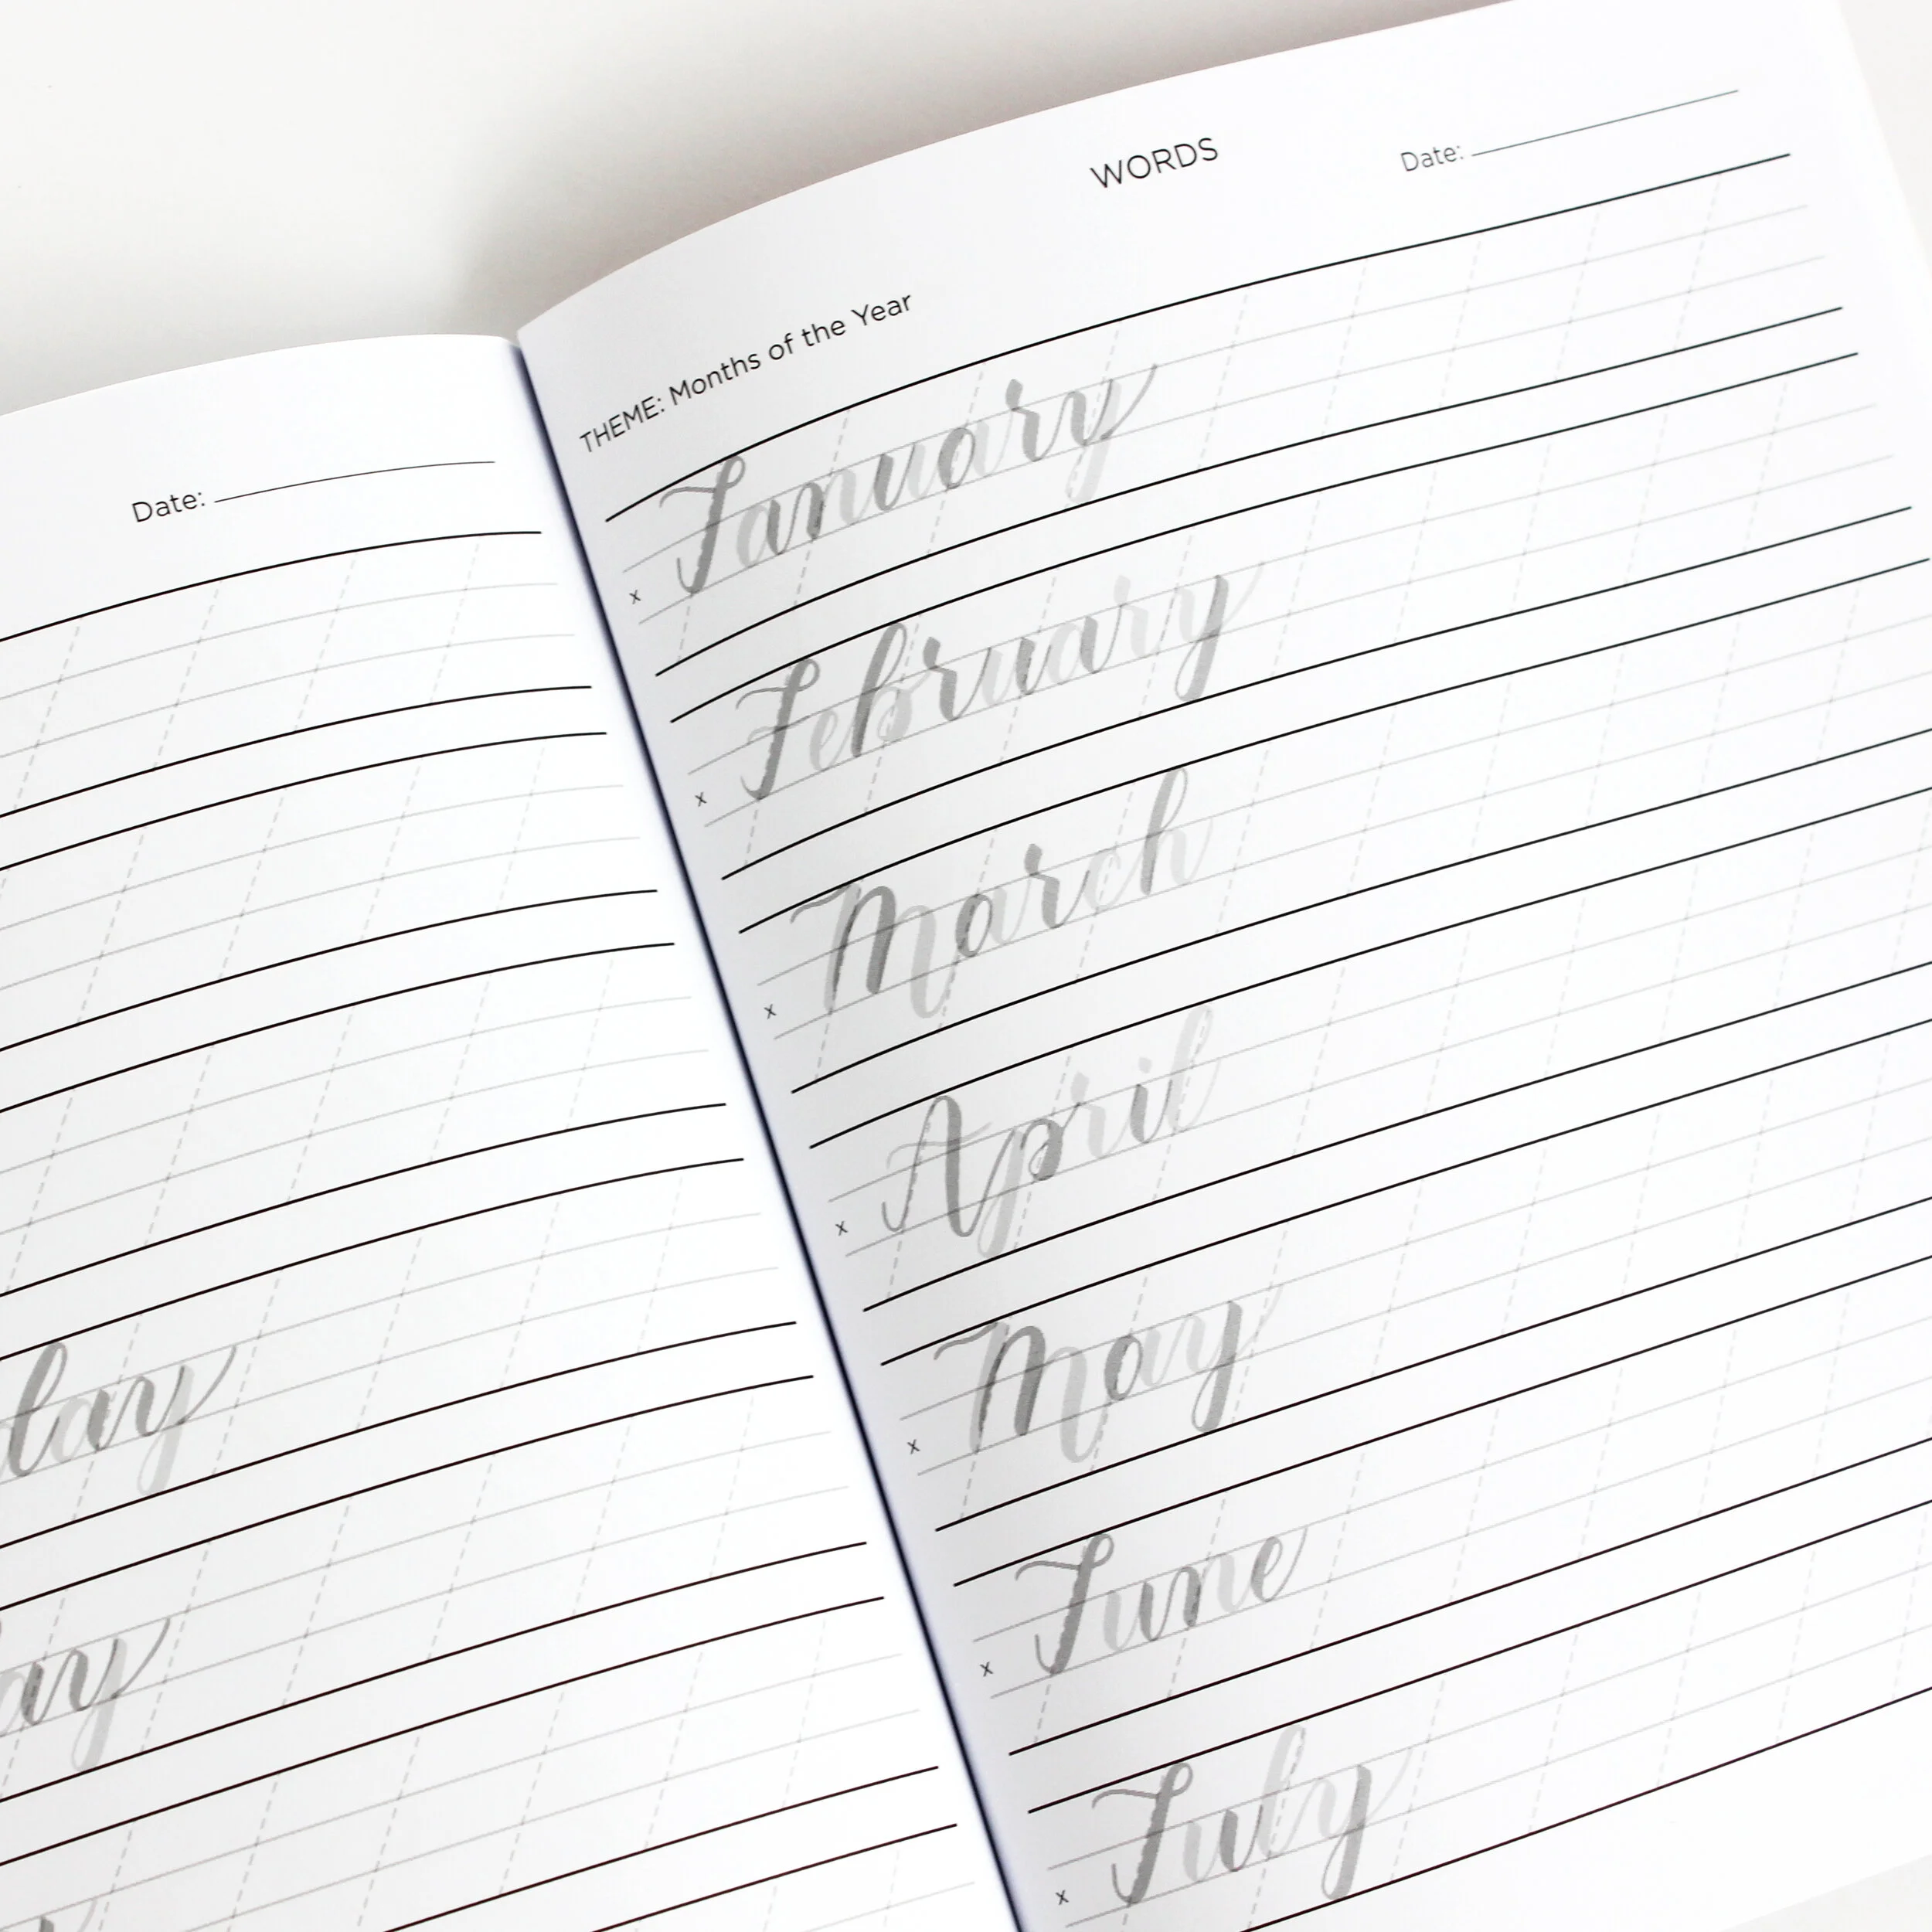 Date:
lay
ay
WORDS
Date:
THEME: Months of the Year
January
x
February
x
March
x
April
x
May
x
June
x
July
x